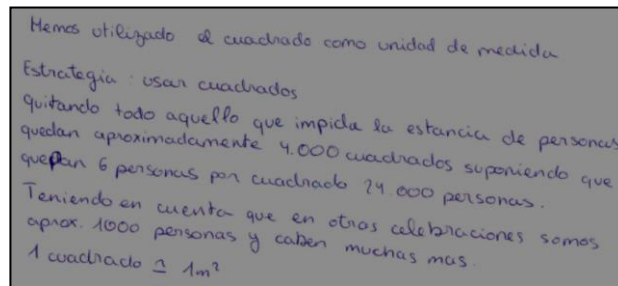 Hemos utilizado el cuadrado como unidad de medida
Estrategia: usar cuadrados
quitando todo aquello que impida la estancia de personas
quedan aproximadamente 4.000 cuadrados suponiendo que
quepan 6 personas por cuadrado 24.000 personas.
Teniendo en cuenta que en otras celebraciones somos
aprox. 1000 personas y caben muchas mas.
1 cuadrado ≃ 1m²